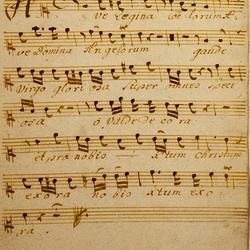 Ave Regina coelorum A,
ve Domina Angelorum gaude
Virgo gloriosa super omnes speci
osa o valde deco ra
et pro nobis x̄tum christum
exora nobis x̄tum exo:
ra.